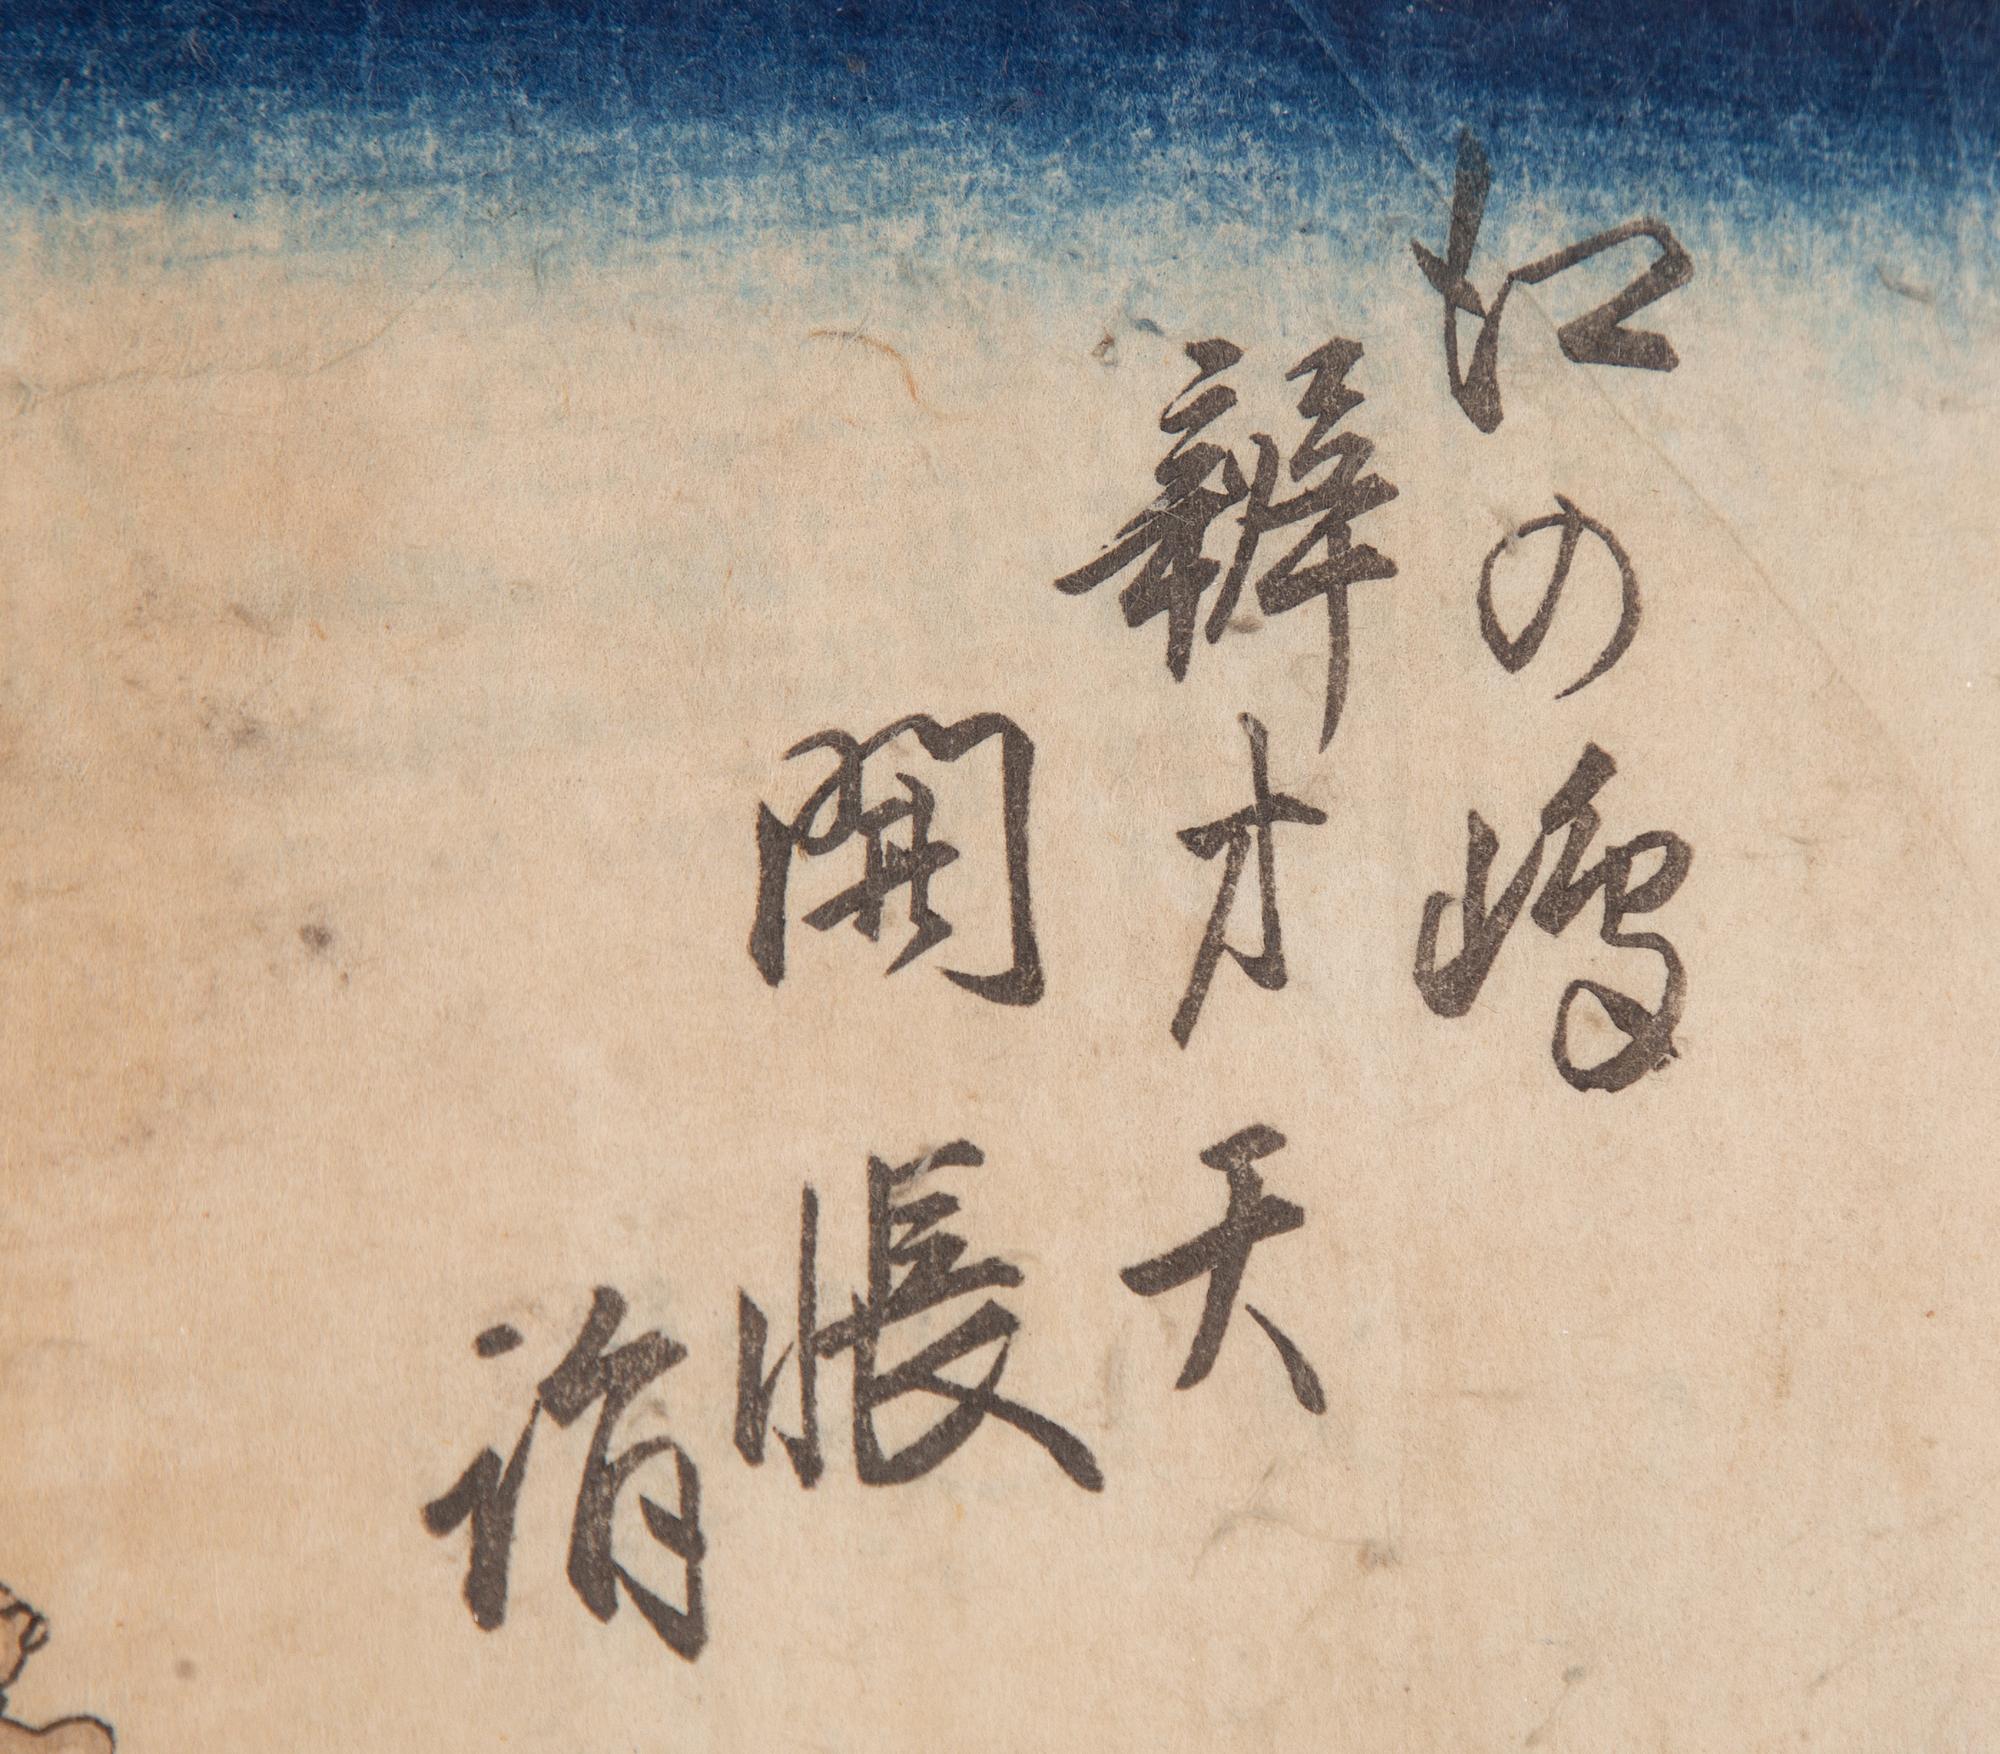 江の嶋
辨才天
開帳
詣